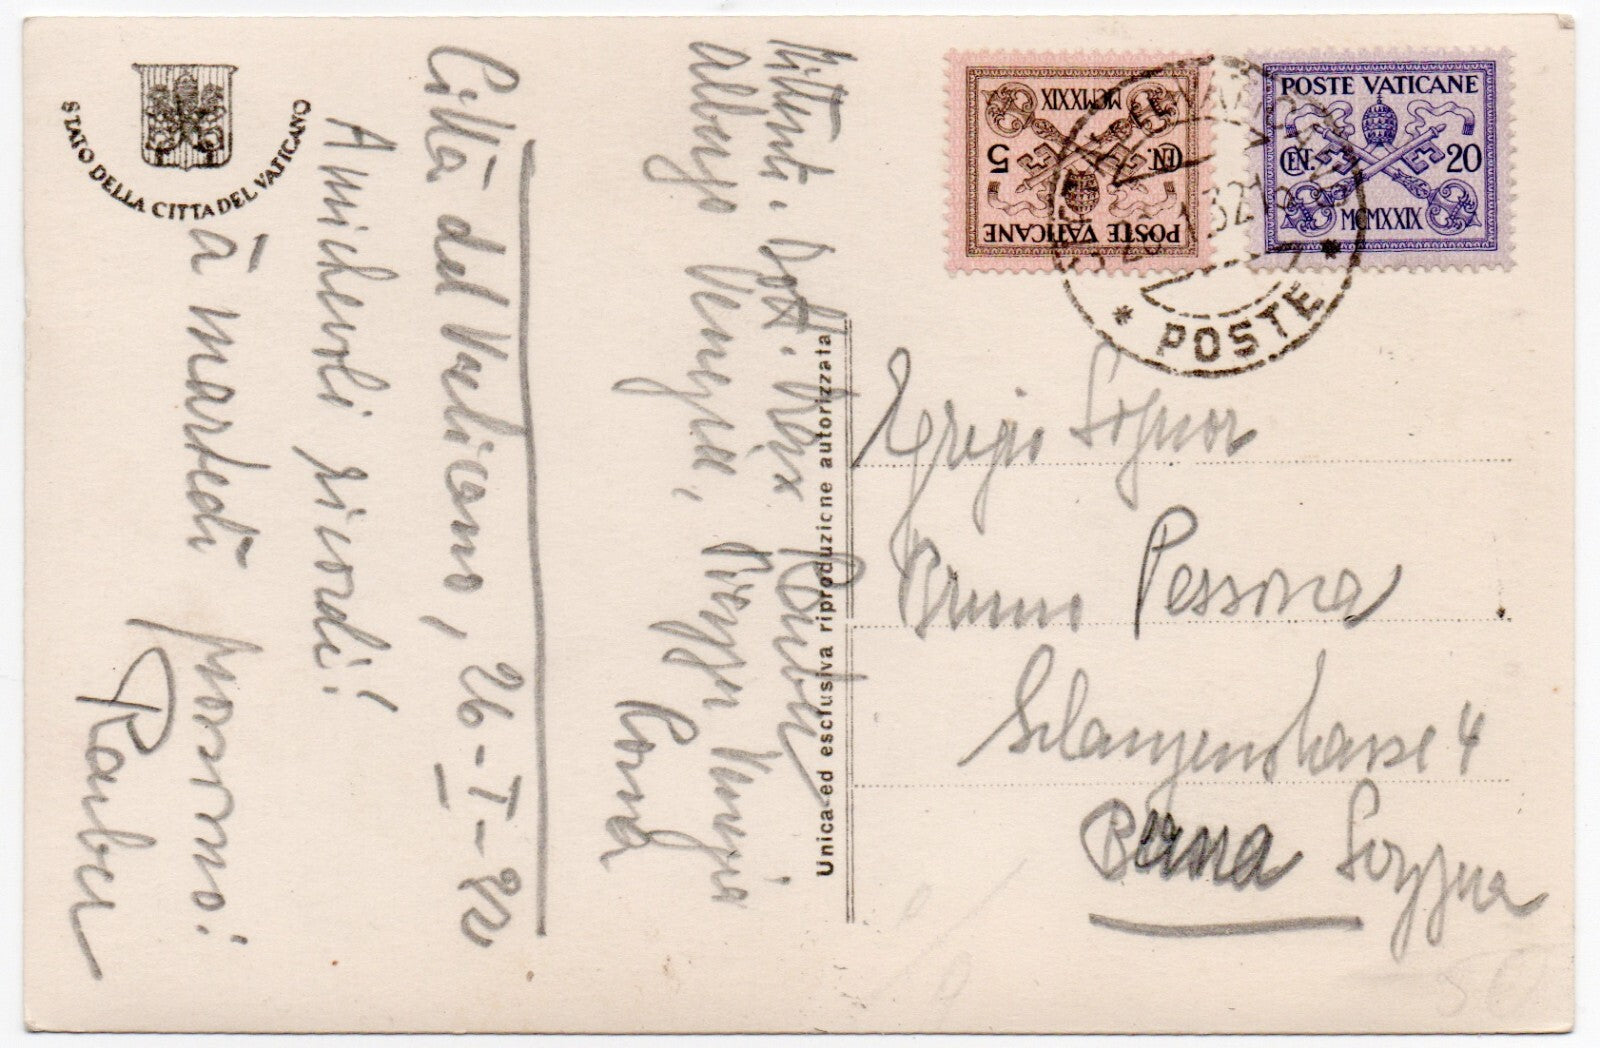 STATO DELLA CITTA DEL VATICANO
Mittente: Dott. Max Rauber
albergo Venezia, Piazza Venezia
Roma
Città del Vaticano, 26-I-32
Amichevoli ricordi!
à martedì prossimo!
Rauber
Unica ed esclusiva riproduzione autorizzata
POSTE VATICANE
CEN. 5
MCMXXIX
POSTE VATICANE
CEN. 20
MCMXXIX
26.1.32
* POSTE *
Egregio Signor
Bruno Pessina
4
Berna